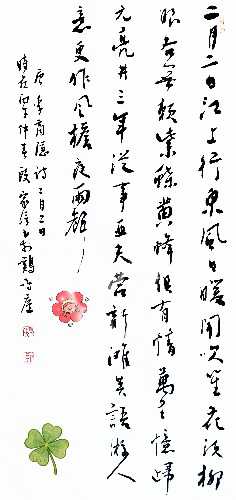 二月二日江上行東風日暖聞吹笙花須柳
眼各無賴紫蝶黄蜂俱有情萬里憶歸
元亮井三年從事亞夫營新灘莫語遊人
意更作風檐夜雨聲
唐李商隱詩二月二日
時在仲春段家